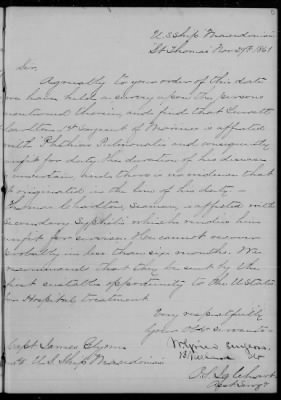 U.S. Ship Macedonian
St Thomas Nov 27th 1861
Sir,
Agreeably to your order of this date
we have held a survey upon the persons
mentioned therein, and find that
Sergeant of Marines is affected
with Phthisis Pulmonalis and consequently
unfit for duty. The duration of his disease
is uncertain, and there is no evidence that
it originated in the line of his duty. —
Thomas Charlton, Seaman, is affected with
secondary Syphilis which renders him
unfit for service. He cannot recover
probably in less than six months. We
recommend that they be sent by the
first suitable opportunity to the U. States
for Hospital treatment
Very respectfully
Your Obt Servants
Surgeon
Capt James Glynn
U.S. Ship Macedonian
Asst Surgn